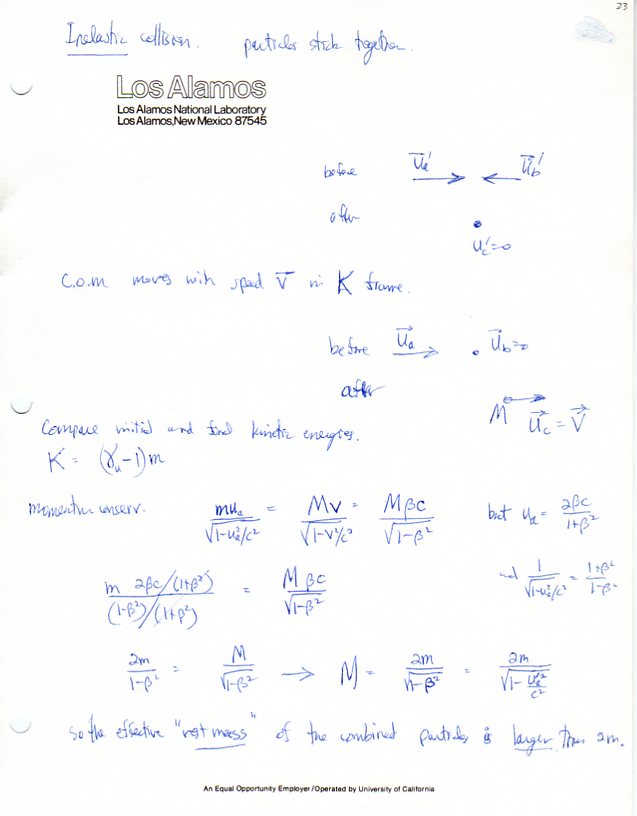 23
Inelastic collision. particles stick together.
Los Alamos
Los Alamos National Laboratory
Los Alamos, New Mexico 87545
before u⃗ₐ' u⃗_b'
after
u_c'=0
C.O.M moves with speed V⃗ in K frame.
before u⃗ₐ u⃗_b=0
after
M u⃗_c = V⃗
Compare initial and final kinetic energies.
K = (γᵤ-1)m
momentum conserv. muₐ/√(1-uₐ²/c²) = MV/√(1-V²/c²) = Mβc/√(1-β²) but uₐ = 2βc/(1+β²)
m 2βc/(1+β²) / (1-β²)/(1+β²) = Mβc/√(1-β²) and 1/√(1-uₐ²/c²) = (1+β²)/(1-β²)
2m/(1-β²) = M/√(1-β²) → M = 2m/√(1-β²) = 2m/√(1-uₐ'²/c²)
So the effective "rest mass" of the combined particles is larger than 2m.
An Equal Opportunity Employer/Operated by University of California